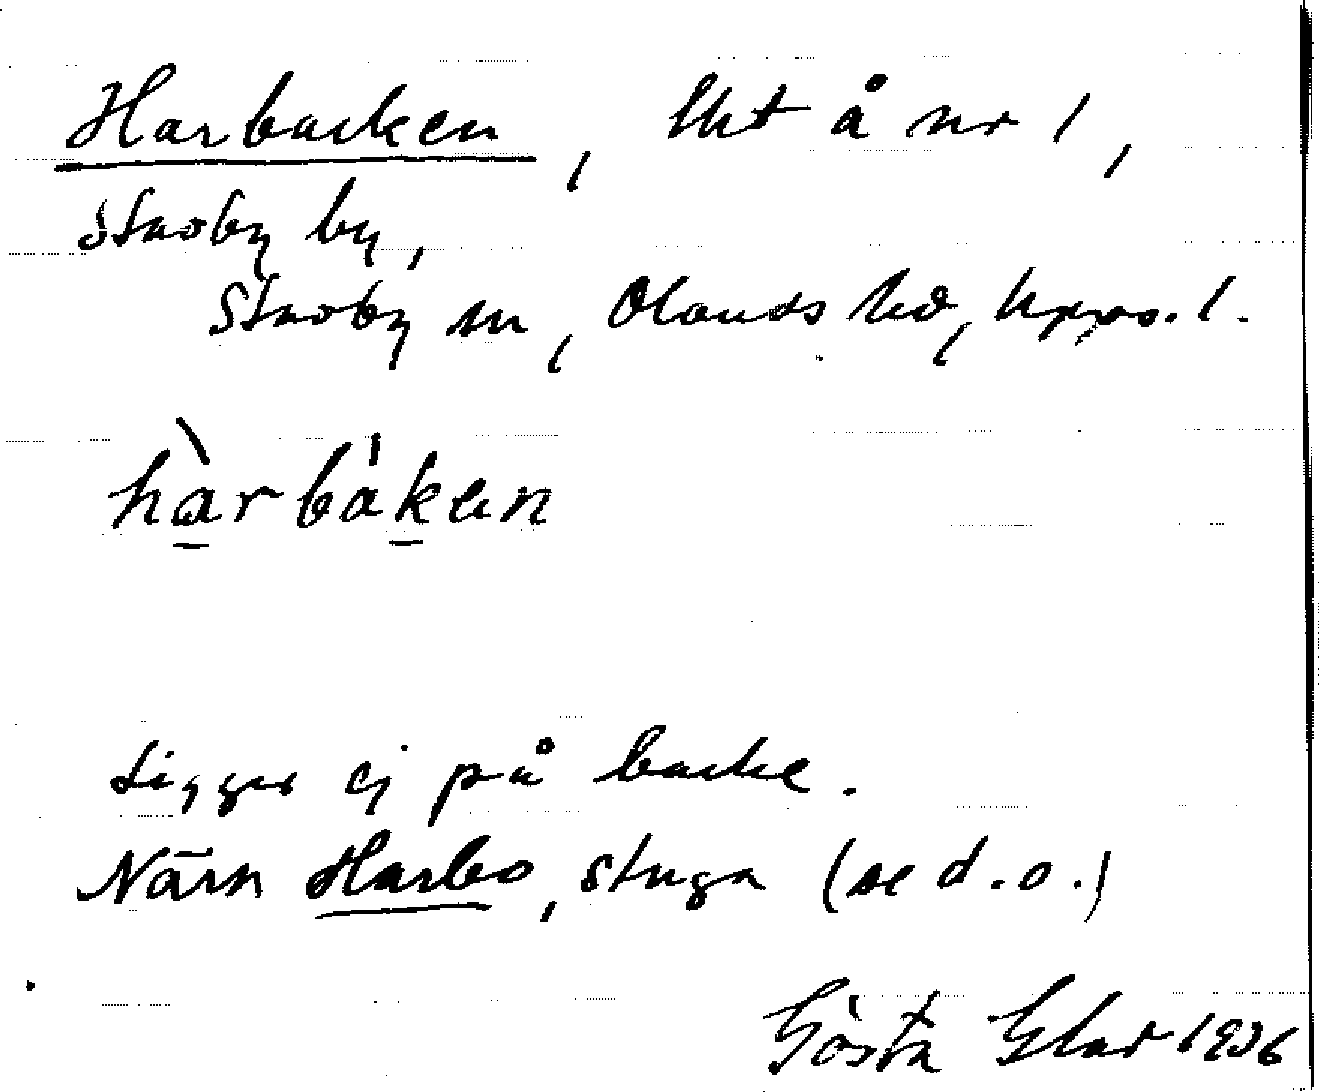 Harbacken, lht å nr 1,
Stavby by,
Stavby sn, Olands hd, Upps. l.
hàrbàkan
Ligger ej på backe.
Närh Harbo, stuga (se d.o.)
Gösta 1936